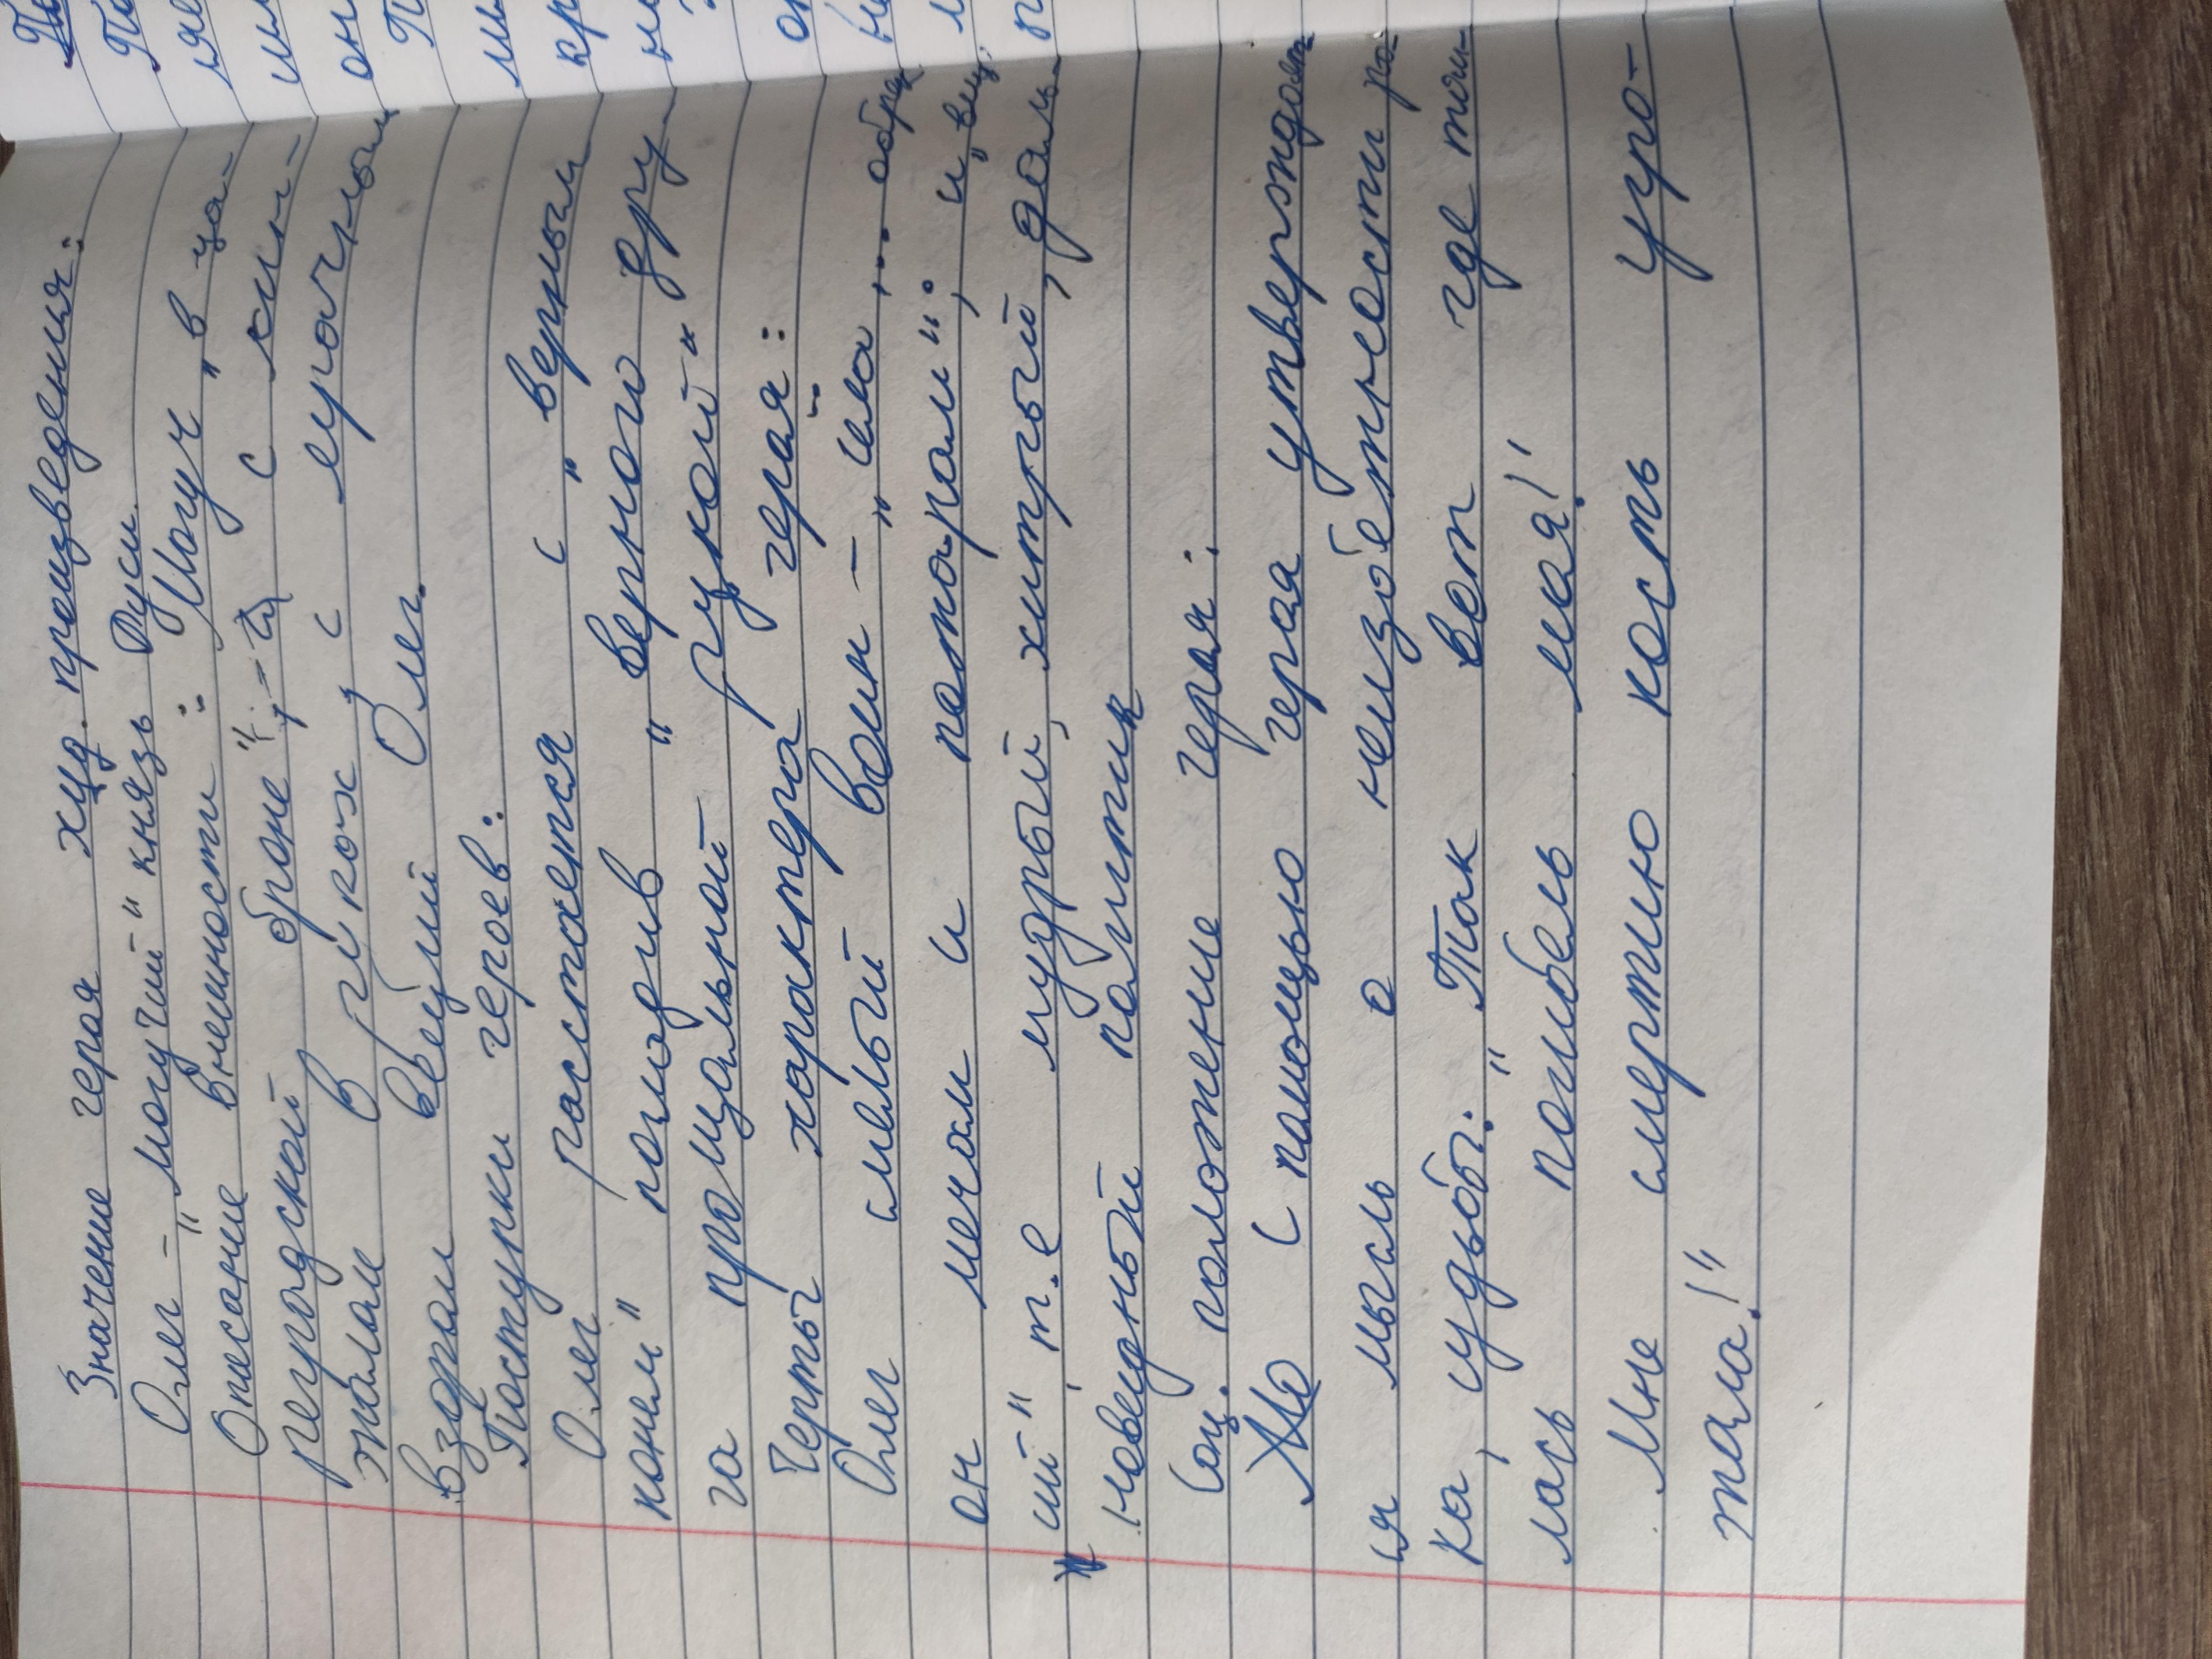 Значение героя худ. произведения:
Олег - "могучий" князь Руси.
Описание внешности: Могуч, "в ца-
регродской броне"; - с кин-
жалом в руках, с мрачным
взором вещий Олег.
Поступки героев:
Олег расстаётся с "верным
конем" погладив "верного дру-
га прощальной рукой"
Черты характера героя:
Олег смелый воин - "имя,...
он мечом и поторам"; и "вещ
ий" т.е мудрый, хитрый, даль-
новедный политик
Соц. положение героя:
С помощью героя утверждает-
ся мысль о неизбетности ро-
ка, судьбы: "Так вот где таи-
лась погибель моя!"
Мне смертию кость угро-
жала!"